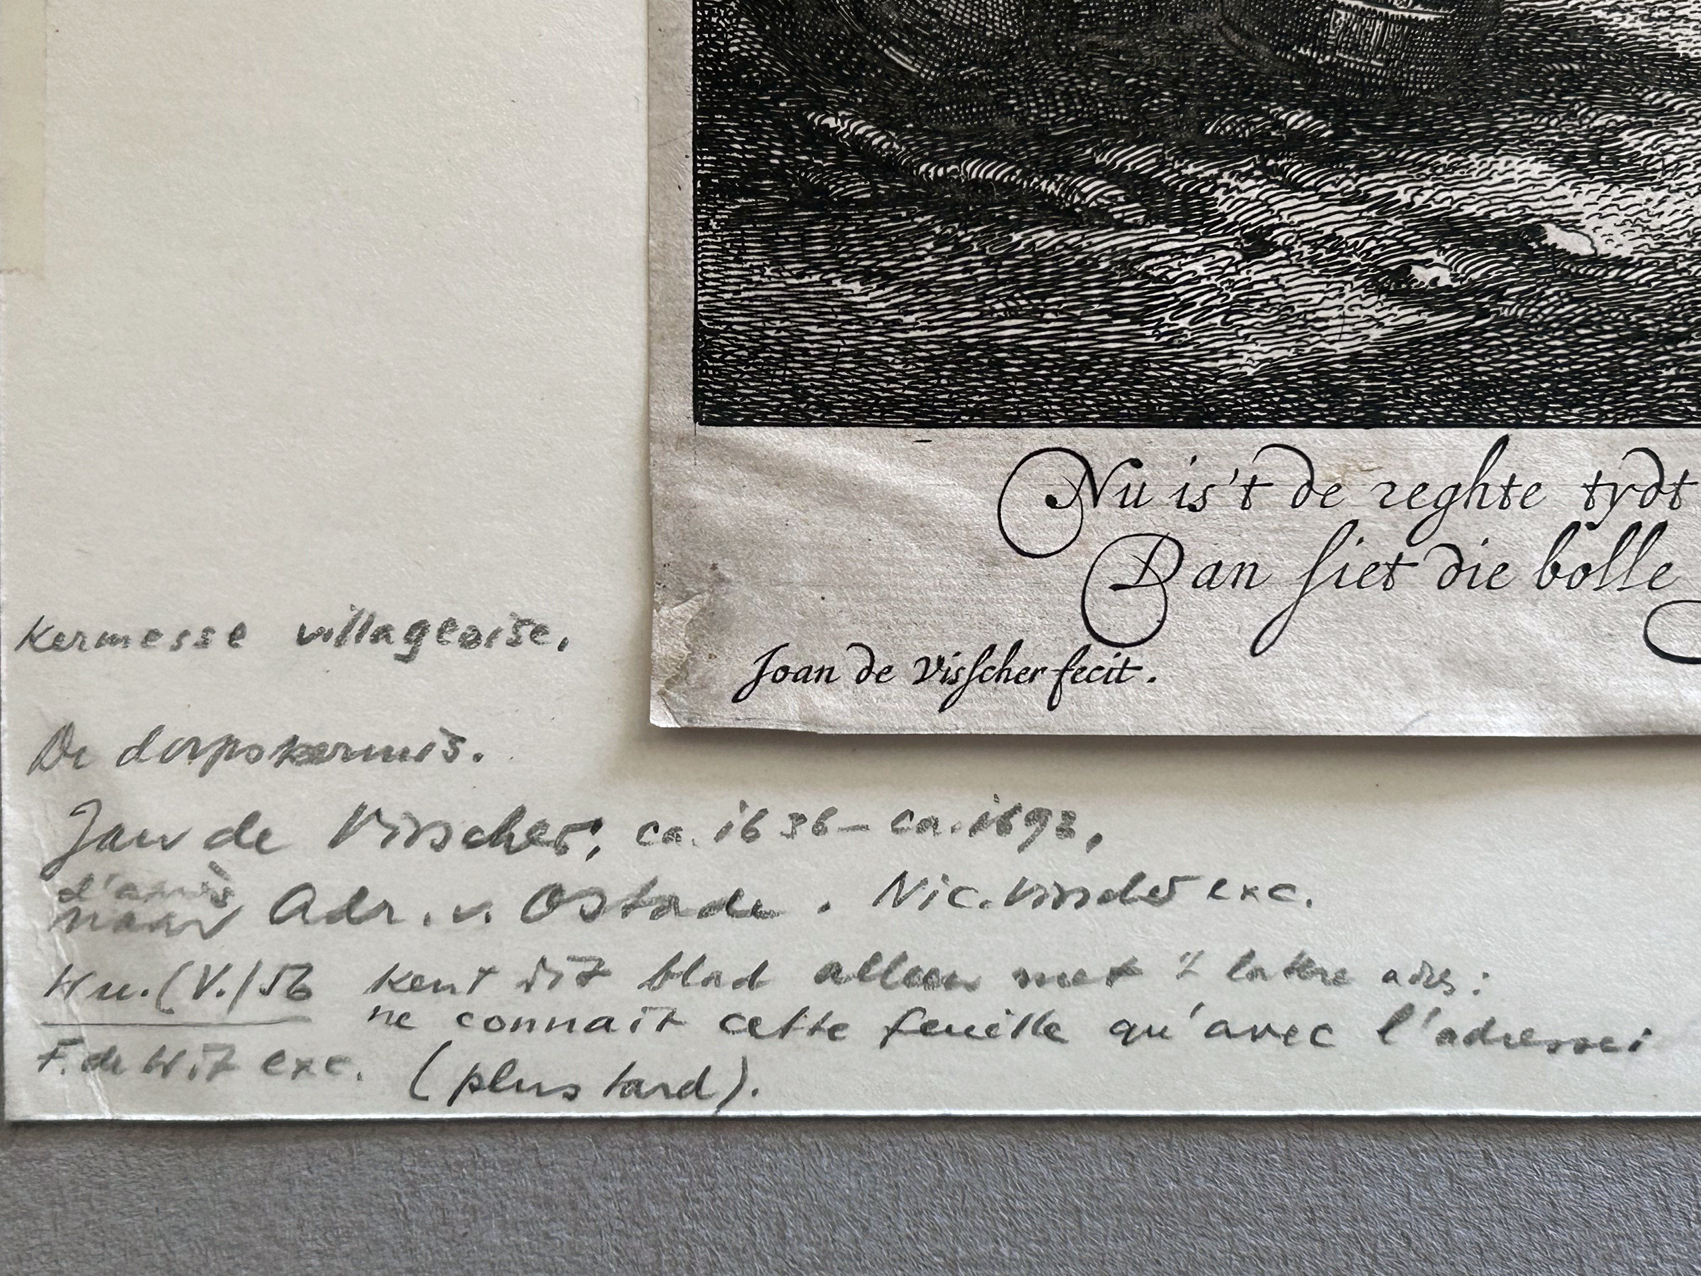 Nu is't de reghte tydt
Dan siet die bolle
Joan de Visscher fecit.
Kermesse villageoise.
De dorpskermis.
Jan de Visscher, ca. 1636 – ca. 1692,
d'après
naar Adr. v. Ostade. Nic. Visscher exc.
Wu. (V.) 56 kent dit blad alleen met 't latere adres:
ne connaît cette feuille qu'avec l'adresse:
F. de Wit exc. (plus tard).